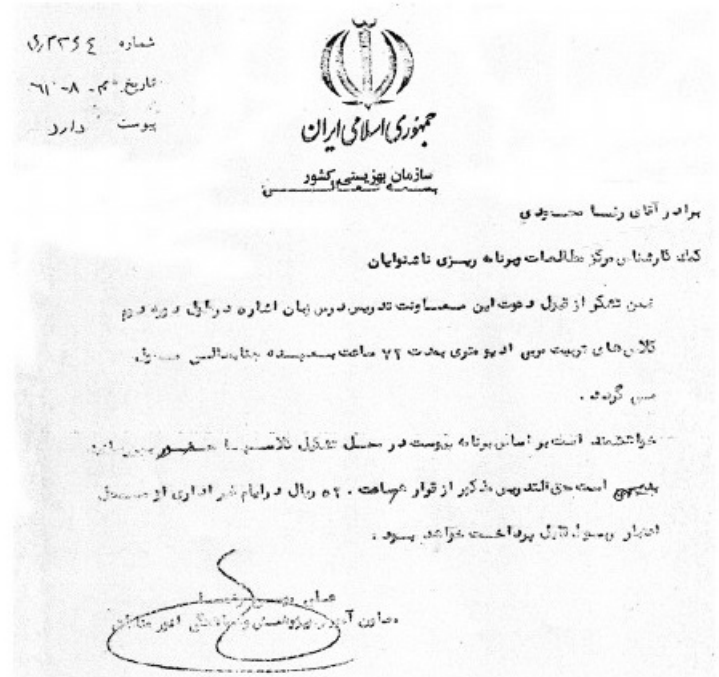 شماره
تاریخ ۸-۶۱
پیوست دارد
جمهوری اسلامی ایران
سازمان بهزیستی کشور
بسمه تعالی
برادر آقای رضا محمودی
کمک کارشناس مرکز مطالعات وبرنامه ریزی ناشنوایان
ضمن تشکر از قبول دعوت این معاونت تدریس درس زبان اشاره در طول دوره دوم
کلاس های تربیت مربی ادیو متری بمدت ۷۲ ساعت بعهده جنابعالی محول
می گردد .
خواهشمند است بر اساس برنامه پیوست در محل تشکیل کلاسها حضور
بدیهی است حق التدریس مذکور از قرار هرساعت ریال در ایام غیر اداری از محل
اعتبار قابل پرداخت خواهد بود .
معاون آموزش پژوهش و هماهنگی امور